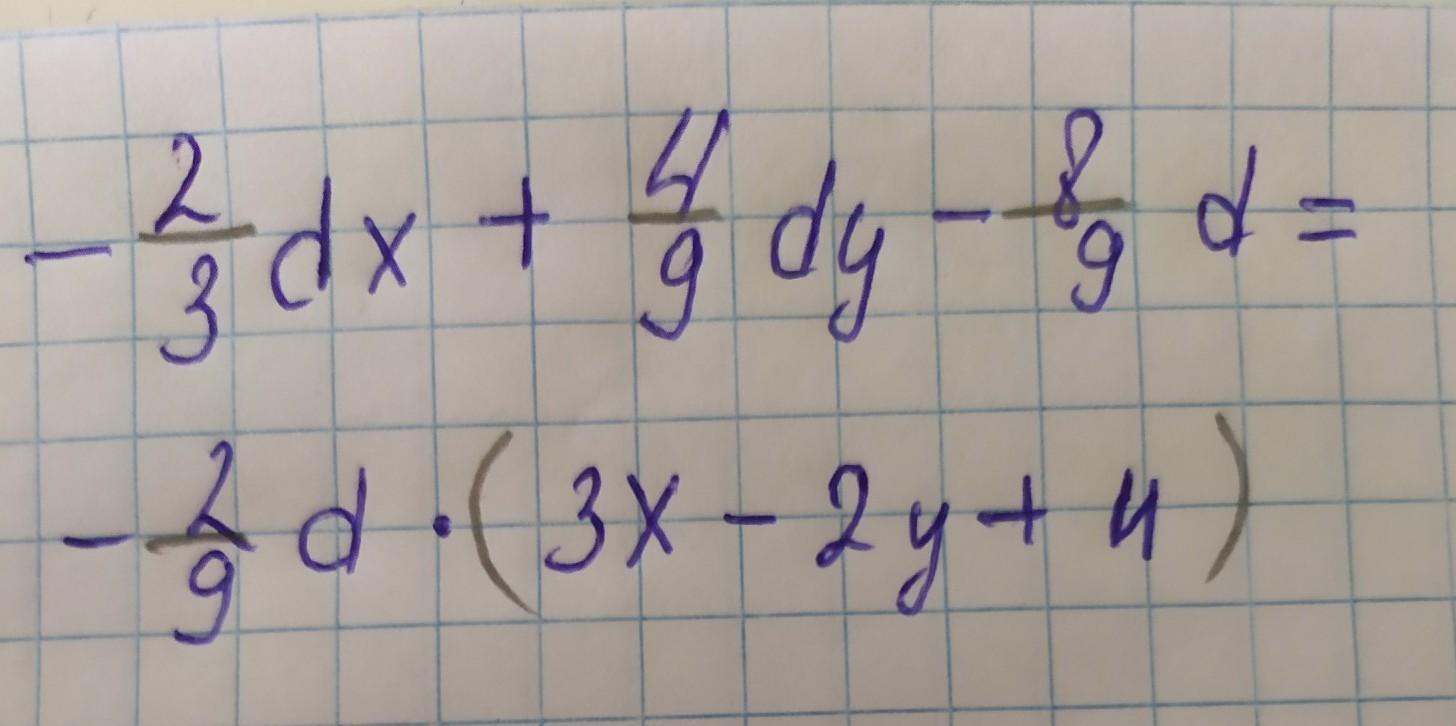 - 2/3 dx + 4/9 dy - 8/9 d =
- 2/9 d · (3x - 2y + 4)